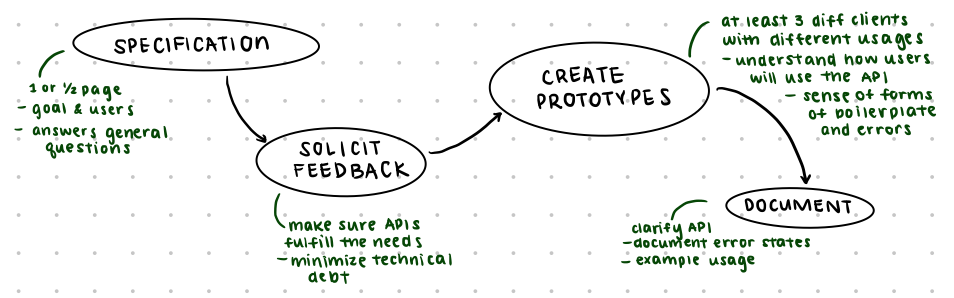 SPECIFICATION
1 or 1/2 page
- goal & users
- answers general
questions
SOLICIT
FEEDBACK
make sure APIs
fulfill the needs
- minimize technical
debt
CREATE
PROTOTYPES
at least 3 diff clients
with different usages
- understand how users
will use the API
- sense of forms
of boilerplate
and errors
DOCUMENT
clarify API
- document error states
- example usage